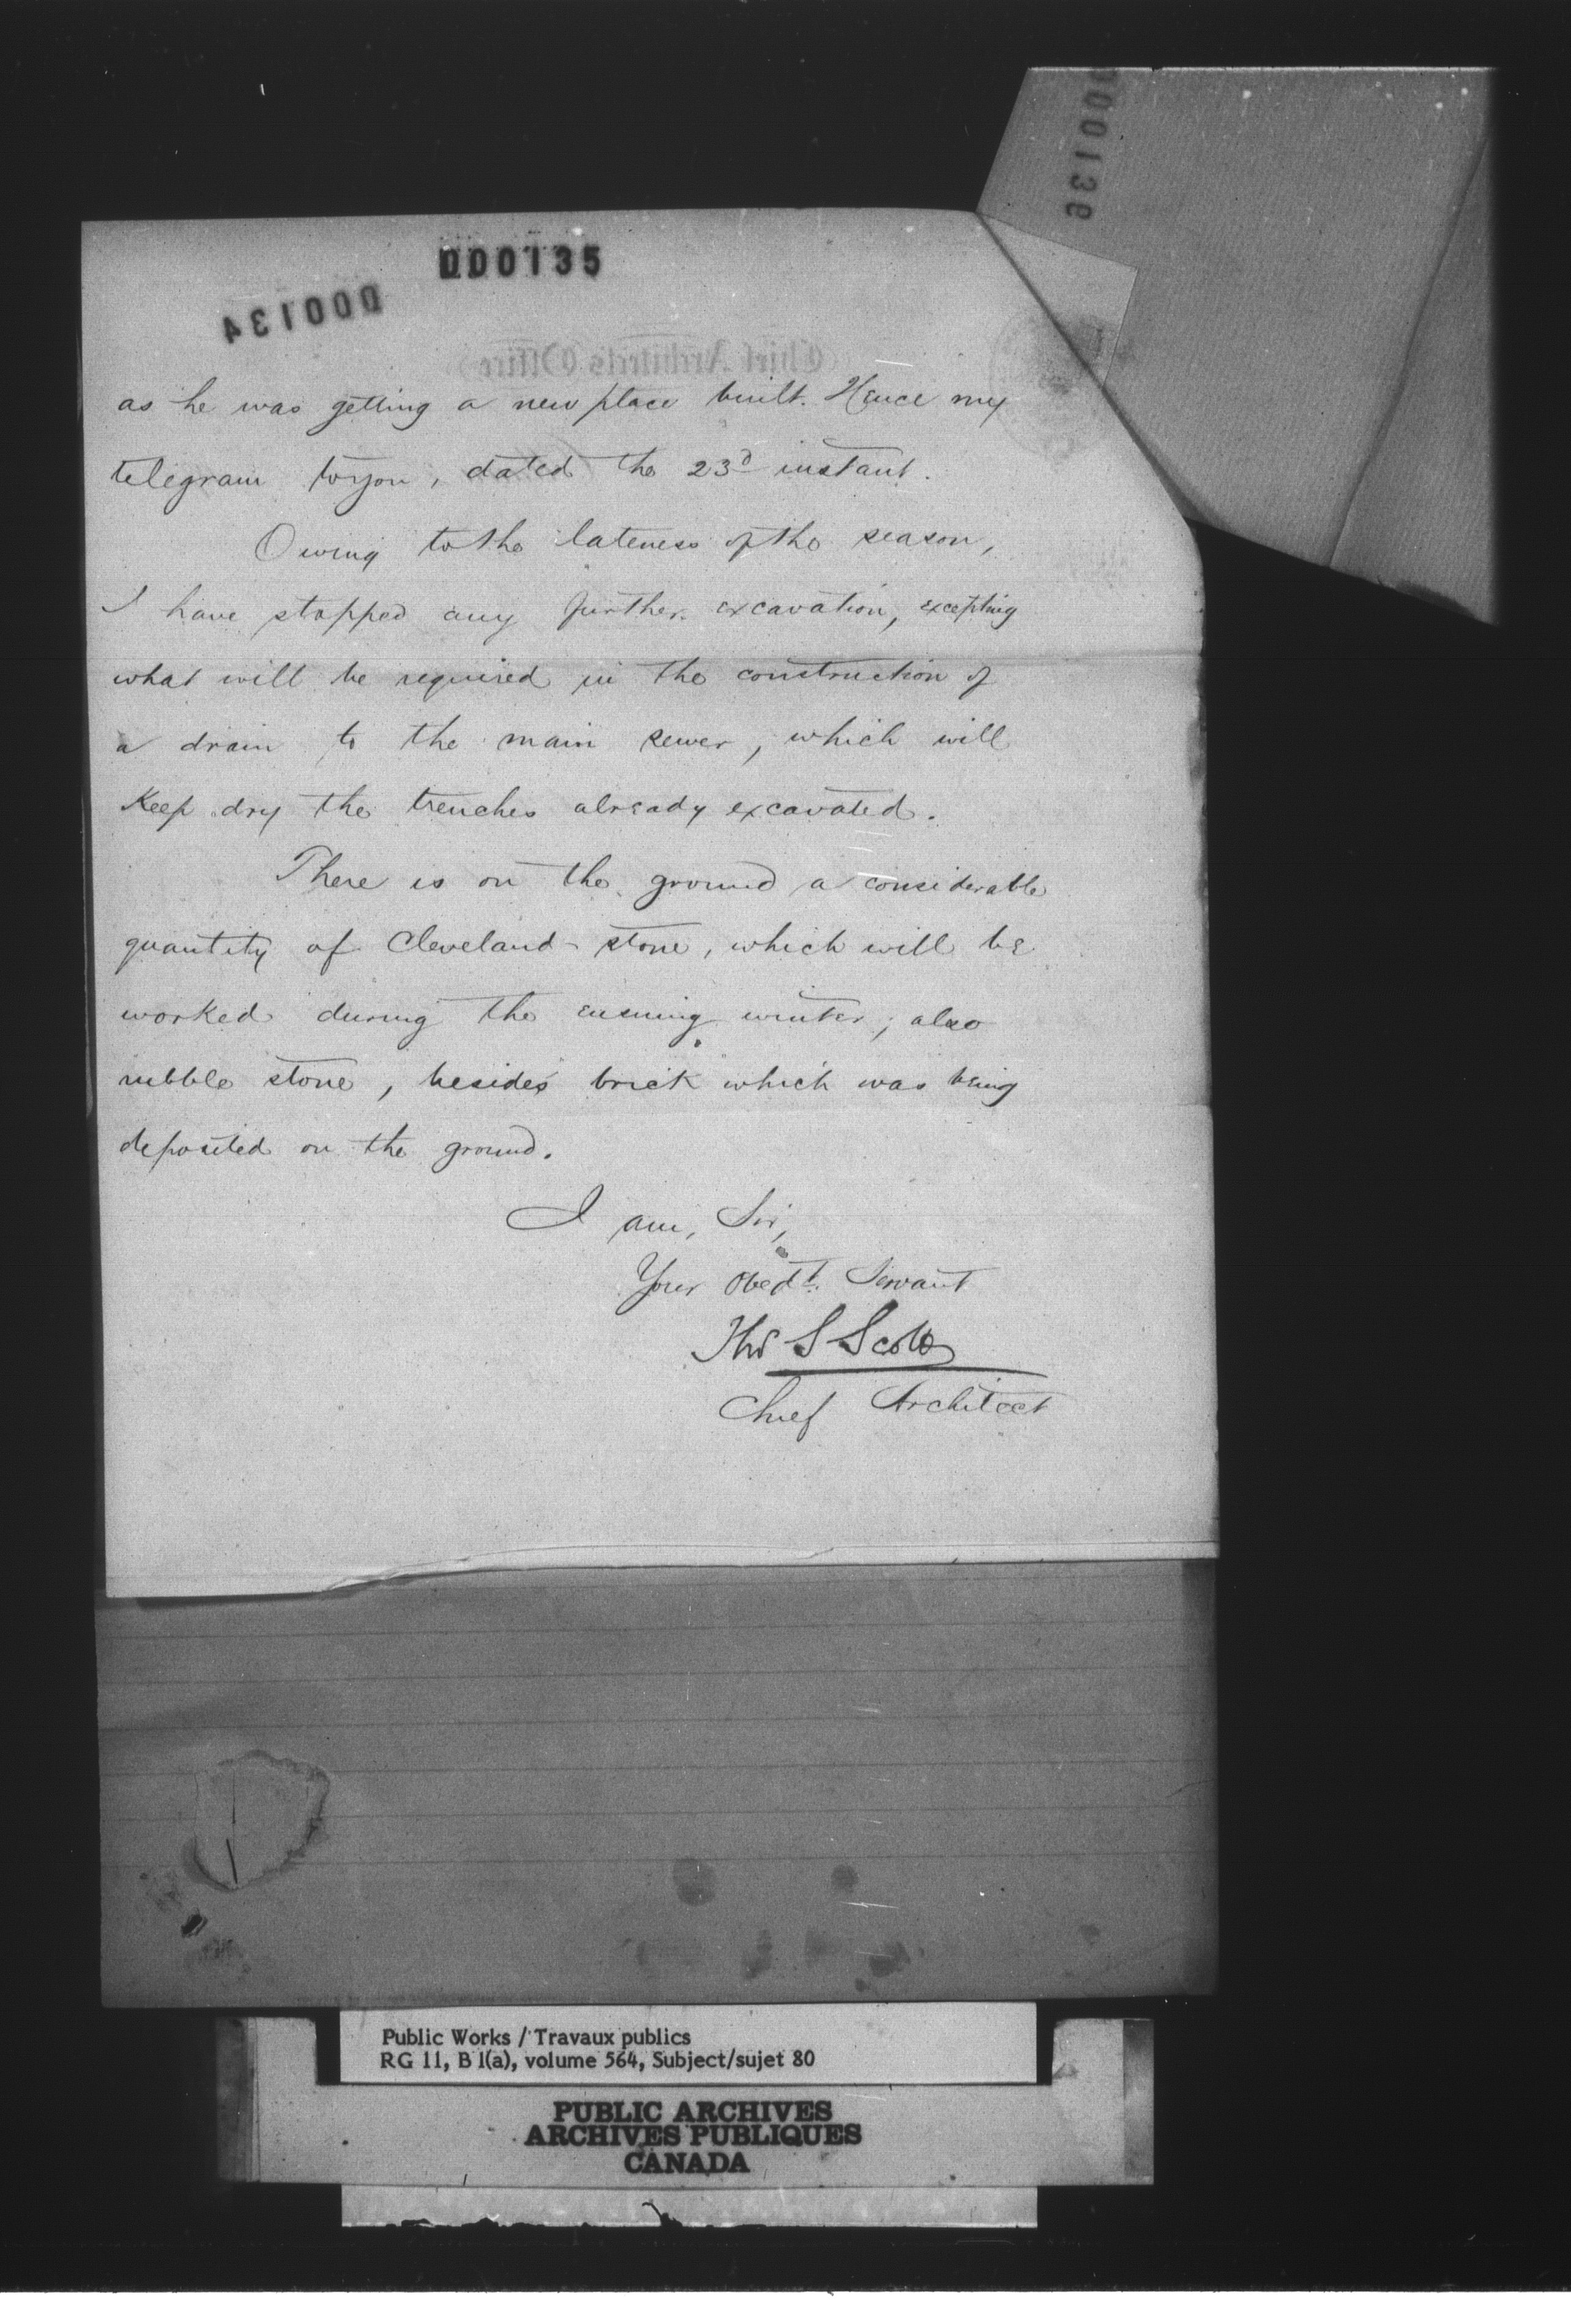 000136
000135
000134
Chief Architects Office
as he was getting a new place built. Hence my
telegram to you, dated the 23d instant.
Owing to the lateness of the season,
I have stopped any further excavation, excepting
what will be required in the construction of
a drain to the main sewer, which will
Keep dry the trenches already excavated.
There is on the ground a considerable
quantity of Cleveland stone, which will be
worked during the ensuing winter; also
rubble stone, besides brick which was being
deposited on the ground.
I am, Sir,
Your Obedt. Servant
Thos S Scott
Chief Architect
Public Works / Travaux publics
RG 11, B 1(a), volume 564, Subject/sujet 80
PUBLIC ARCHIVES
ARCHIVES PUBLIQUES
CANADA